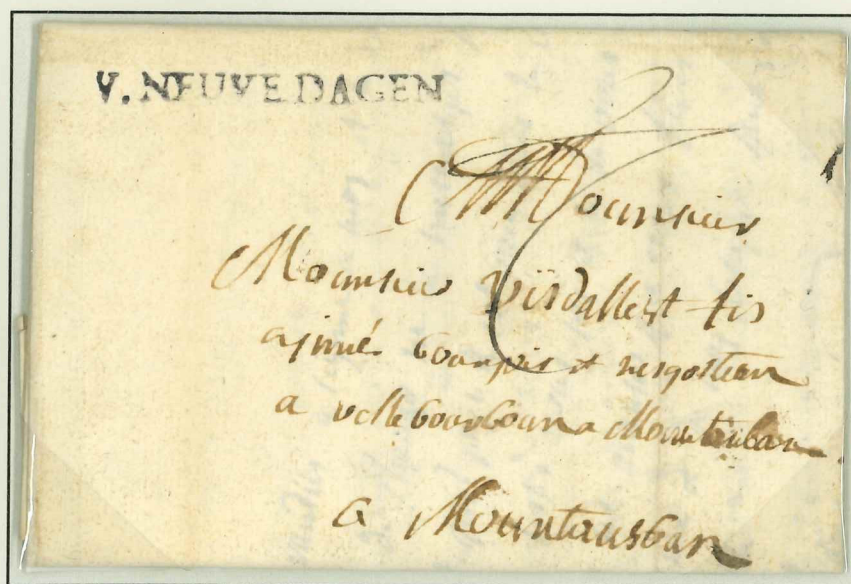 V. NEUVE DAGEN
Mounsieur
Mounsieur vidallest fis
bourgois et nesgostien
a velle bourboun a Mountauban
a Mountausban